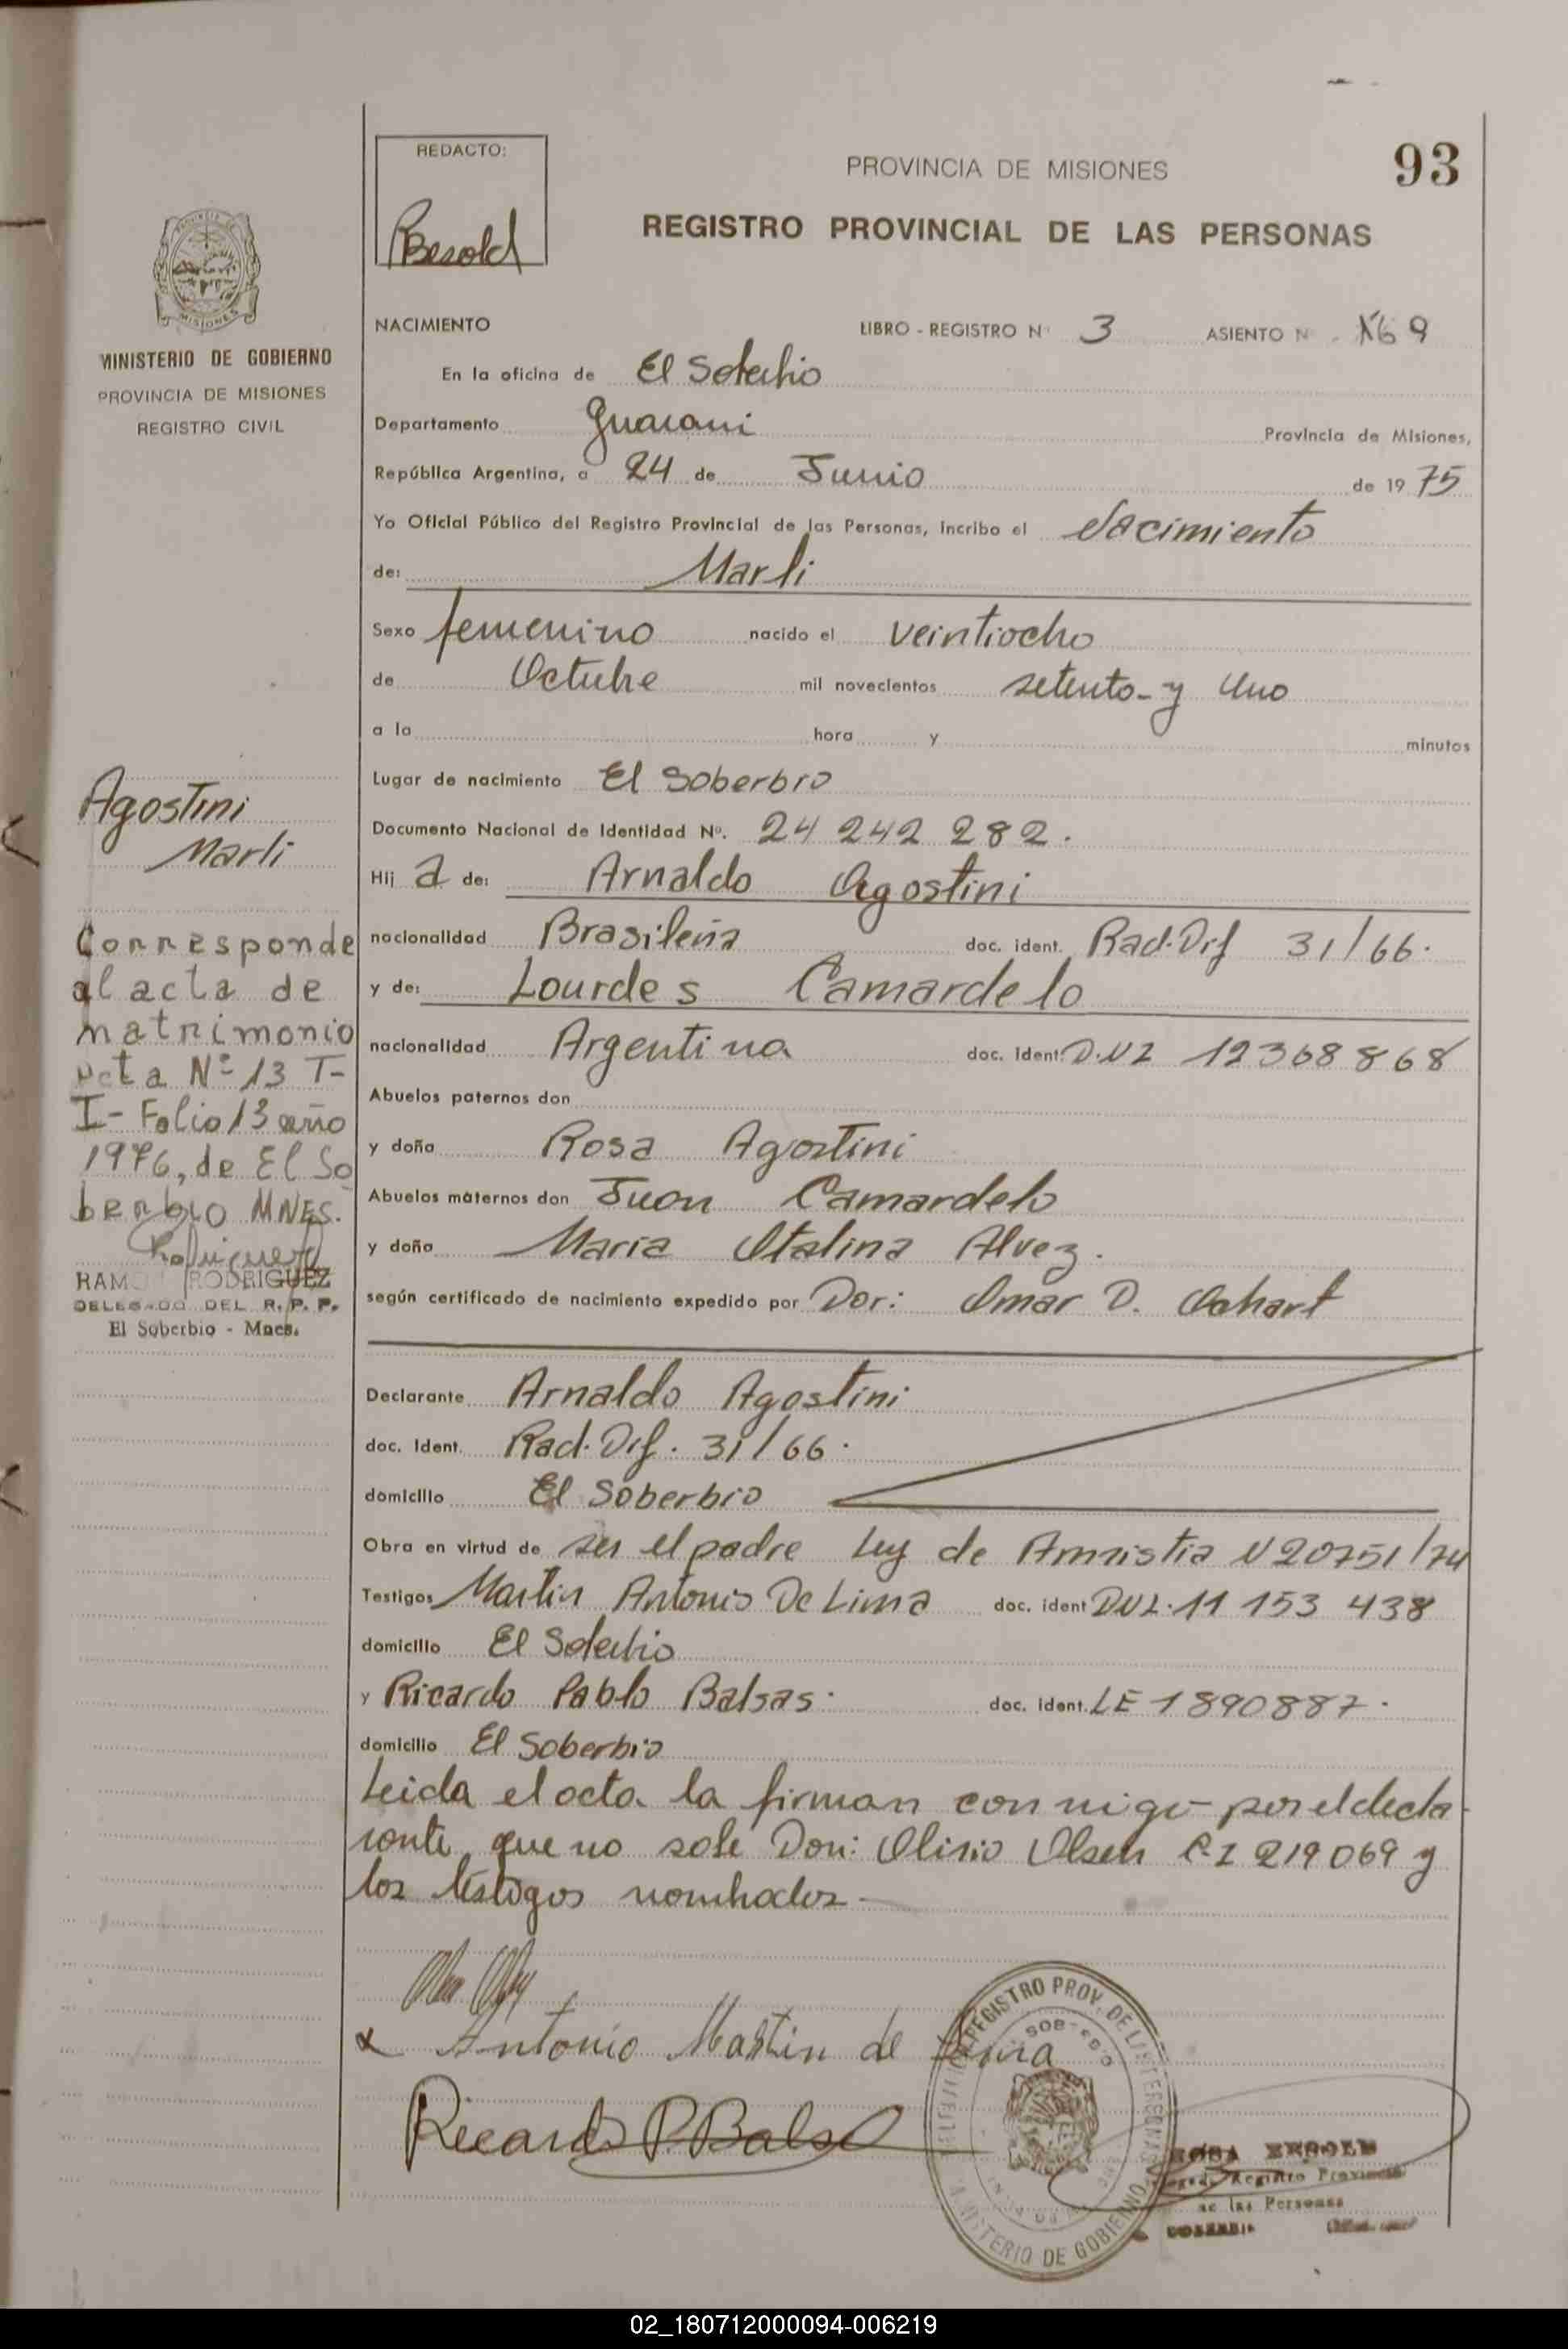 REDACTO:
Besold
PROVINCIA DE MISIONES
93
REGISTRO PROVINCIAL DE LAS PERSONAS
MISIONES
MINISTERIO DE GOBIERNO
PROVINCIA DE MISIONES
REGISTRO CIVIL
NACIMIENTO LIBRO - REGISTRO Nº 3 ASIENTO N 169
En la oficina de El Soberbio
Departamento Guarani Provincia de Misiones,
República Argentina, a 24 de Junio de 19 75
Yo Oficial Público del Registro Provincial de las Personas, incribo el Nacimiento
de: Marli
Sexo femenino nacido el veintiocho
de Octubre mil novecientos setenta y Uno
a la hora y minutos
Lugar de nacimiento El Soberbio
Documento Nacional de Identidad Nº. 24 242 282.
Hij a de: Arnaldo Agostini
nacionalidad Brasileña doc. ident. Rad. Dif 31/66.
y de: Lourdes Camardelo
nacionalidad Argentina doc. ident. D.N.I 12368868
Abuelos paternos don
y doña Rosa Agostini
Abuelos maternos don Juan Camardelo
y doña Maria Otalina Alvez.
según certificado de nacimiento expedido por Dor: Omar D.
Declarante Arnaldo Agostini
doc. ident. Rad. Dif. 31/66.
domicilio El Soberbio
Obra en virtud de ser el padre Ley de Amnistia N 20751/74
Testigos Martin Antonio De Lima doc. ident DNI. 11 153 438
domicilio El Soberbio
y Ricardo Pablo Balsas. doc. ident. LE 1890887.
domicilio El Soberbio
Leida el acta la firman conmigo por el decla
rante que no sabe Don: Olirio Olsen C.I 219069 y
los testigos nombrados
Antonio Martin de Lima
Ricardo P. Balsa
REGISTRO PROV. DE LAS PERSONAS
MINISTERIO DE GOBIERNO
Registro Provincial
de las Personas
Agostini
Marli
Corresponde
al acta de
matrimonio
acta Nº 13 T-
I- Folio 13 año
1976, de El So
berbio MNES.
Rodriguez
RAMON RODRIGUEZ
DELEGADO DEL R. P. P.
El Soberbio - Mnes.
02_180712000094-006219